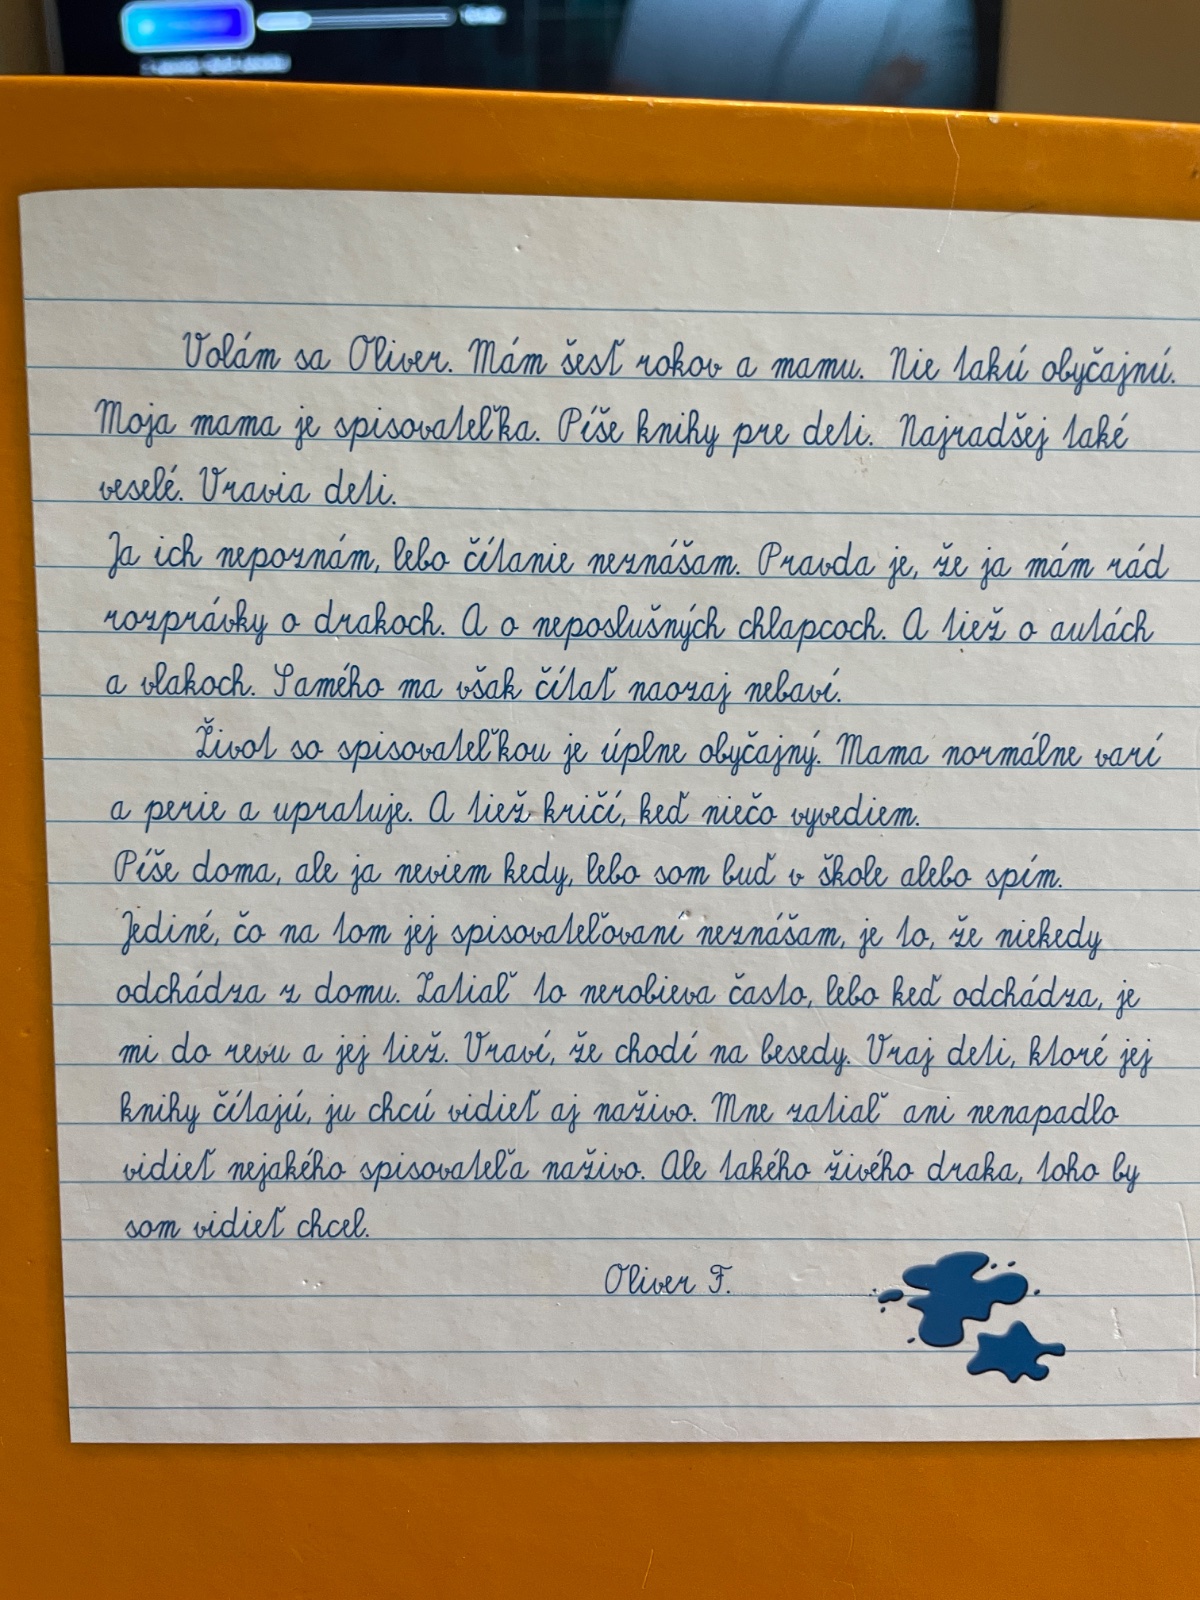 Volám sa Oliver. Mám šesť rokov a mamu. Nie takú obyčajnú.
Moja mama je spisovateľka. Píše knihy pre deti. Najradšej také
veselé. Vravia deti.
Ja ich nepoznám, lebo čítanie neznášam. Pravda je, že ja mám rád
rozprávky o drakoch. A o neposlušných chlapcoch. A tiež o autách
a vlakoch. Samého ma však čítať naozaj nebaví.
Život so spisovateľkou je úplne obyčajný. Mama normálne varí
a perie a upratuje. A tiež kričí, keď niečo vyvediem.
Píše doma, ale ja neviem kedy, lebo som buď v škole alebo spím.
Jediné, čo na tom jej spisovateľovaní neznášam, je to, že niekedy
odchádza z domu. Zatiaľ to nerobieva často, lebo keď odchádza, je
mi do revu a jej tiež. Vraví, že chodí na besedy. Vraj deti, ktoré jej
knihy čítajú, ju chcú vidieť aj naživo. Mne zatiaľ ani nenapadlo
vidieť nejakého spisovateľa naživo. Ale takého živého draka, toho by
som vidieť chcel.
Oliver F.